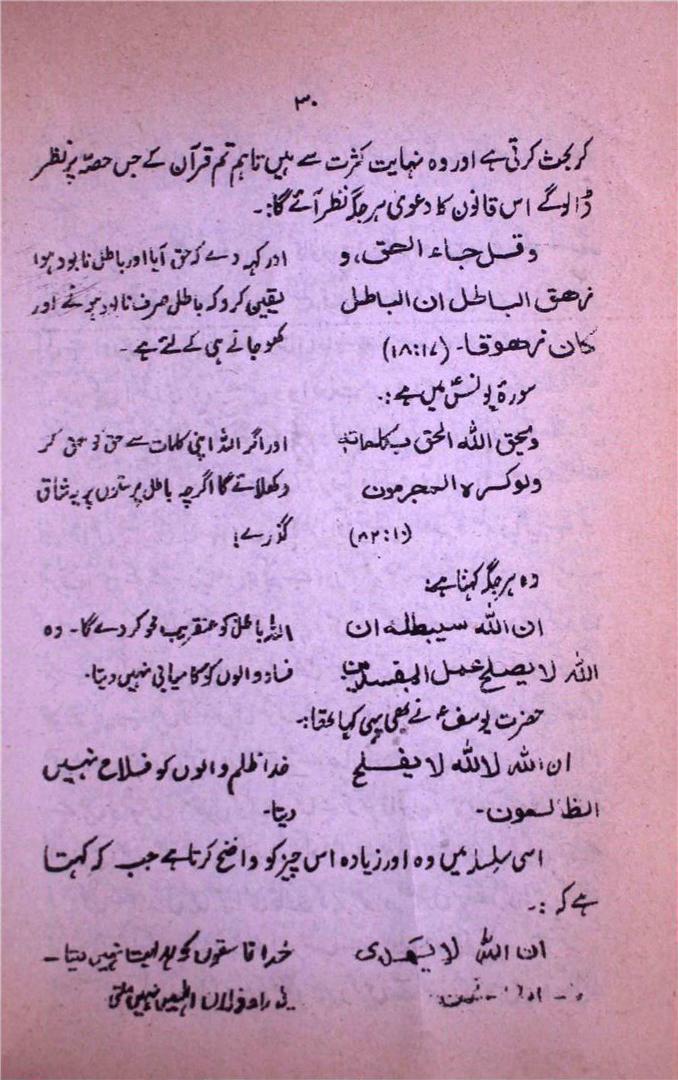 ۳۰
کر بحث کرتی ہے اور وہ نہایت کثرت سے ہیں تاہم تم قرآن کے جس حصہ پر نظر
ڈالوگے اس قانون کا دعویٰ ہر جگہ نظر آئے گا:۔
وقل جاء الحق، و اور کہہ دے کہ حق آیا اور باطل نابود ہوا
زهق الباطل ان الباطل یقین کرو کہ باطل صرف نابود ہونے اور
كان زهوقا۔ (۱۸:۱۷) کھو جانے ہی کے لئے ہے۔
سورۂ یونس میں ہے:۔
ويحق الله الحق بكلماته اور اگر اللہ اپنی کلمات سے حق کو حق کر
ولوكره المجرمون دکھلائے گا اگرچہ باطل پرستوں پر یہ شاق
(۸۲:۱۰) گذرے!
وہ ہر جگہ کہتا ہے:
ان الله سيبطله ان اللہ باطل کو عنقریب محو کر دے گا۔ وہ
الله لا يصلح عمل المفسدين فساد والوں کو کامیابی نہیں دیتا۔
حضرت یوسف ؑ نے بھی یہی کہا تھا:۔
ان الله لالله لا يفلح خدا ظلم والوں کو فلاح نہیں
الظالمون۔ دیتا۔
اسی سلسلہ میں وہ اور زیادہ اس چیز کو واضح کرتا ہے جب کہ کہتا
ہے کہ :۔
ان الله لا يهدى خدا فاسقوں کو ہدایت نہیں دیتا۔
راہ انہیں نہیں ملتی